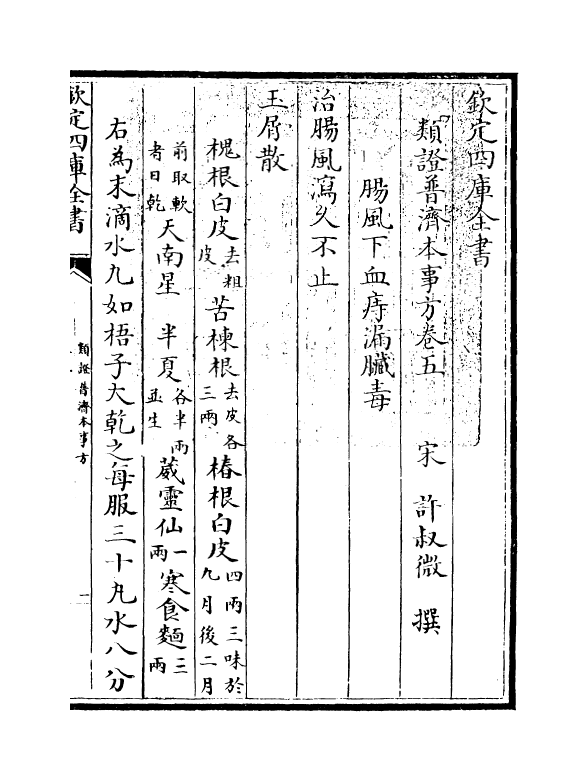 欽定四庫全書
類證普濟本事方卷五　宋　許叔微　撰
腸風下血痔漏臟毒
治腸風瀉久不止
玉屑散
槐根白皮去粗皮苦楝根去皮各三兩椿根白皮四兩三味於九月後二月
前取軟者日乾天南星　半夏各半兩並生葳靈仙一兩寒食麵三兩
右為末滴水丸如梧子大乾之每服三十丸水八分
欽定四庫全書
類證普濟本事方
一